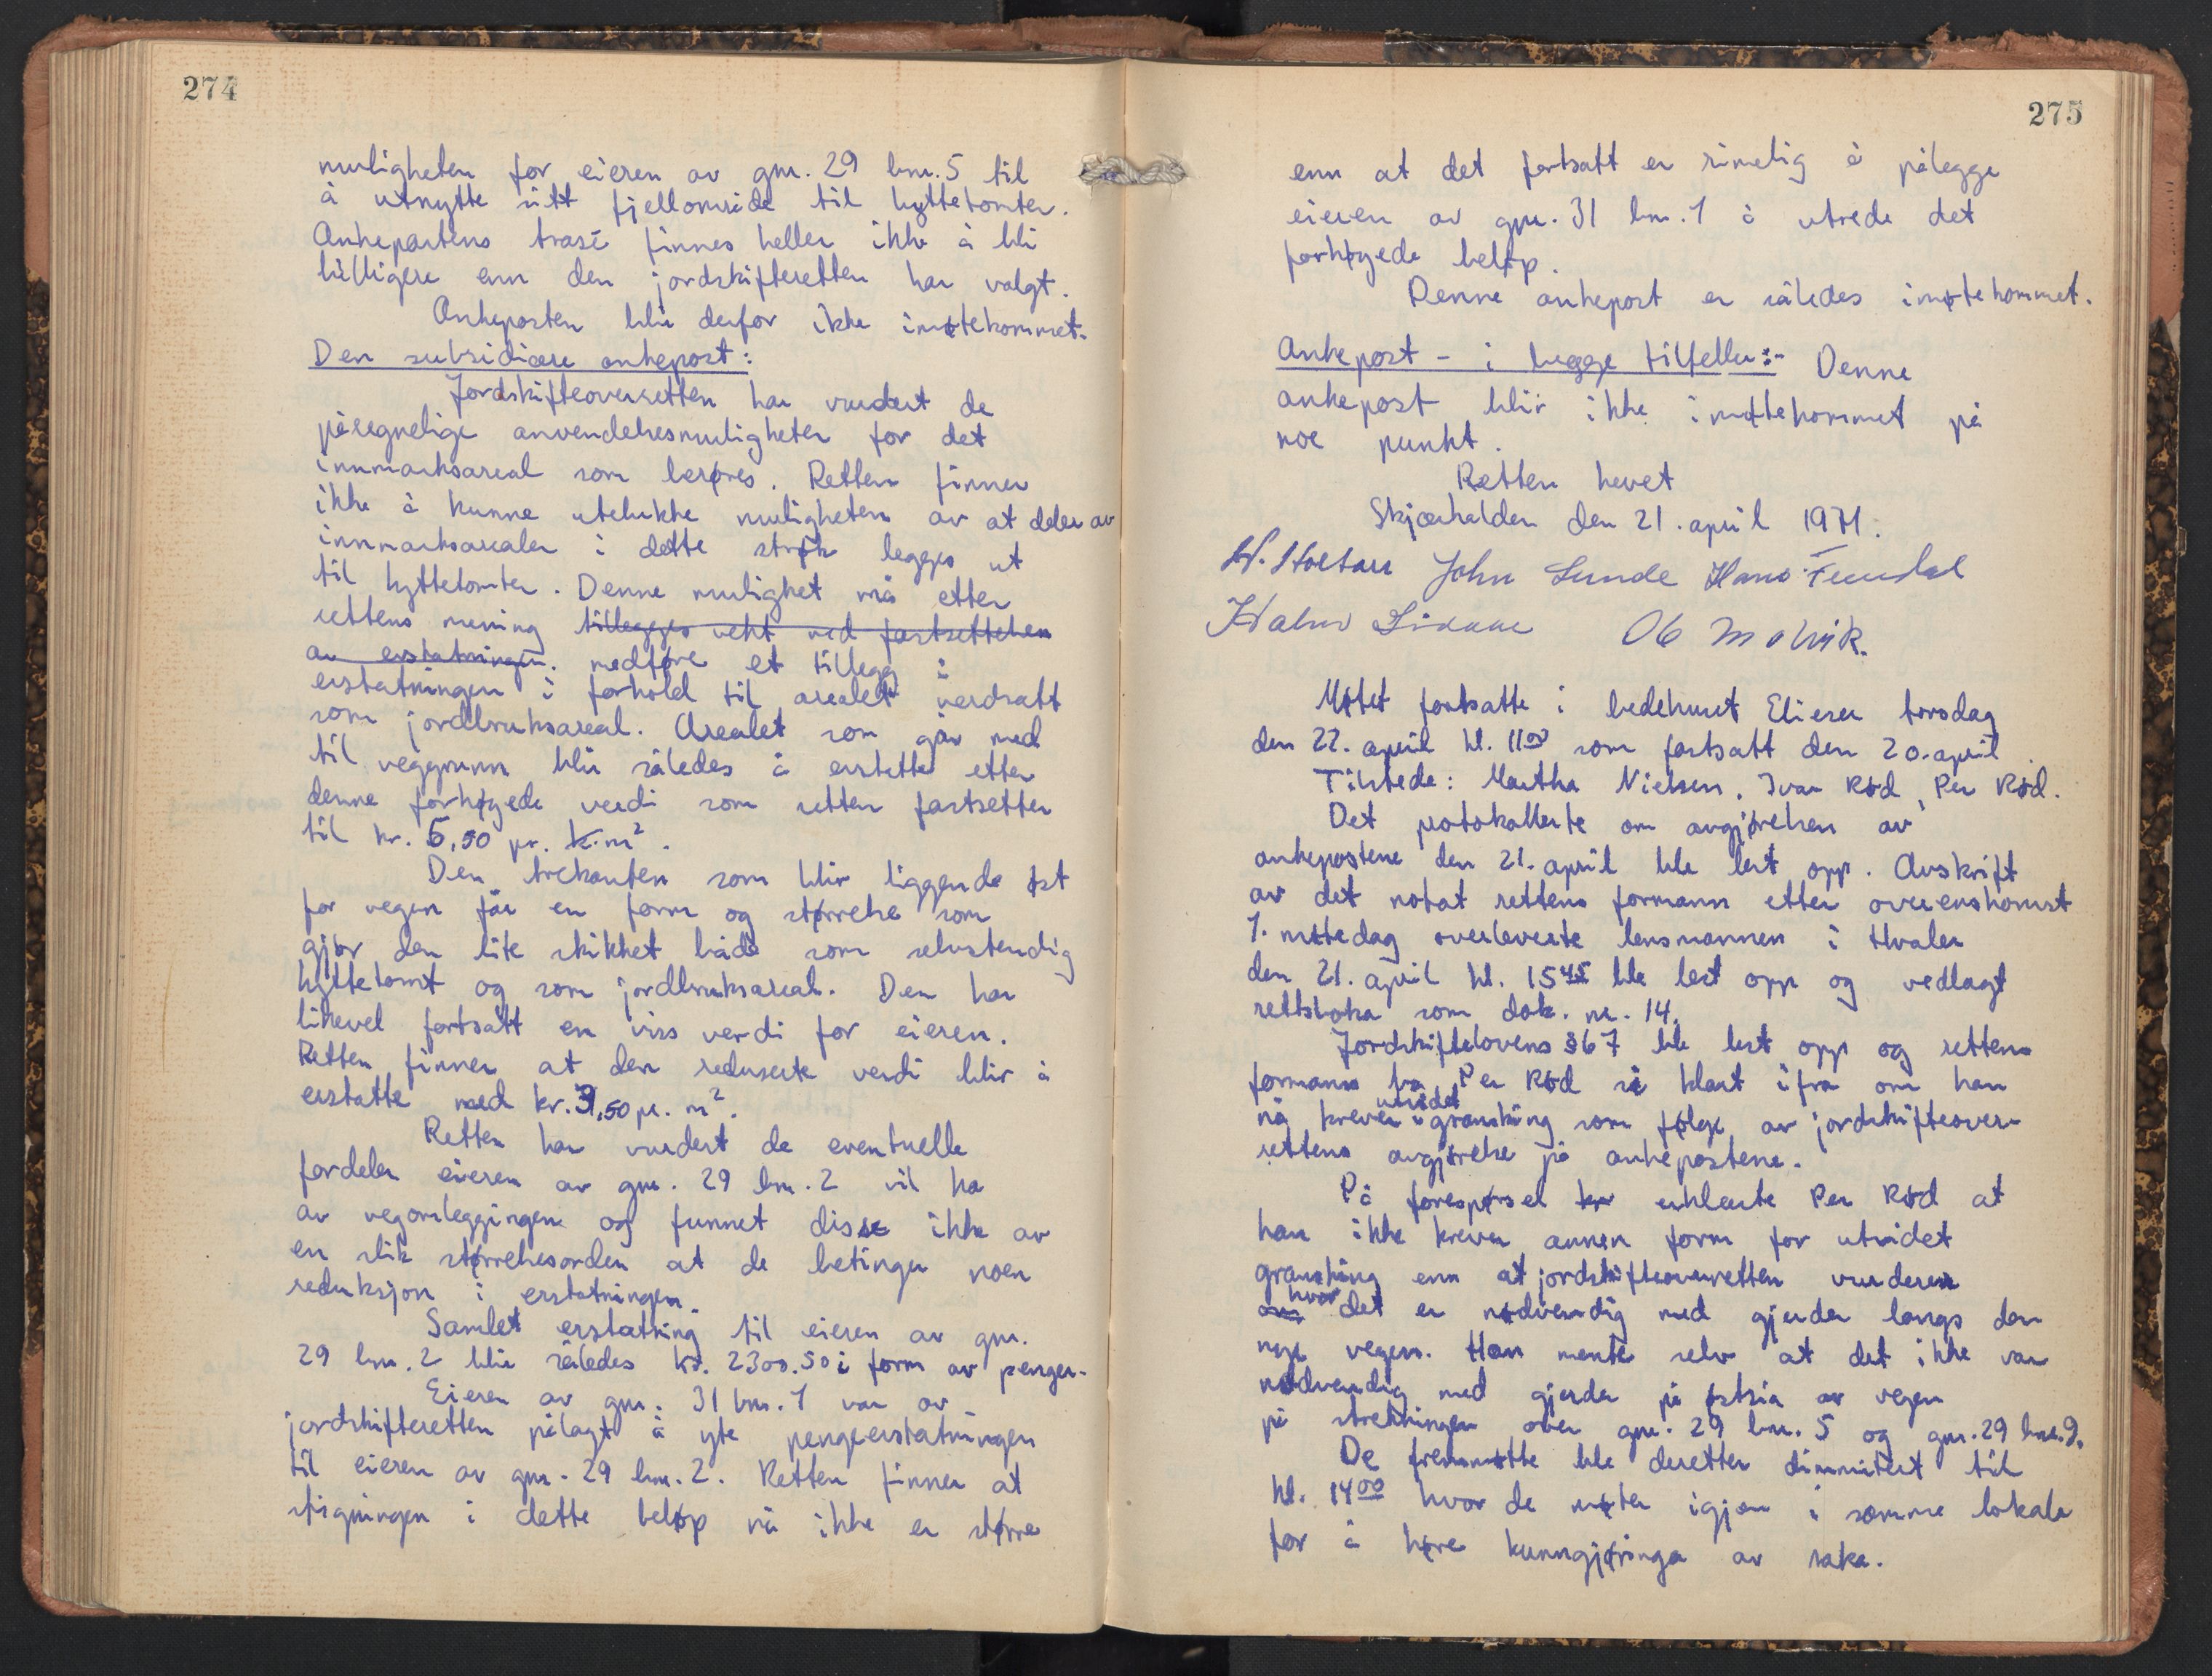 274
muligheten for eieren av gnr. 29 bnr. 5 til
å utnytte sitt fjellområde til hyttetomter.
Ankepartens trasé finnes heller ikke å bli
billigere enn den jordskifteretten har valgt.
Ankeposten blir derfor ikke imøtekommet.
Den subsidiære ankepost:
Jordskifteoverretten har vurdert de
påregnelige anvendelsesmuligheter for det
innmarksareal som berøres. Retten finner
ikke å kunne utelukke muligheten av at deler av
innmarksarealer i dette strøk legges ut
til hyttetomter. Denne mulighet må etter
rettens mening tillegges vekt ved fastsettelsen
av erstatningen. medføre et tillegg i
erstatningen i forhold til arealets verdsatt
som jordbruksareal. Arealet som går med
til veggrunn blir således å erstatte etter
denne forhøyede verdi som retten fastsetter
til kr. 5,50 pr. k.m².
Den trekanten som blir liggende øst
for vegen får en form og størrelse som
gjør den lite skikket både som selvstendig
hyttetomt og som jordbruksareal. Den har
likevel fortsatt en viss verdi for eieren.
Retten finner at den reduserte verdi blir å
erstatte med kr. 3,50 pr. m².
Retten har vurdert de eventuelle
fordeler eieren av gnr. 29 bnr. 2 vil ha
av vegomleggingen og funnet disse ikke av
en slik størrelsesorden at de betinger noen
reduksjon i erstatningen.
Samlet erstatning til eieren av gnr.
29 bnr. 2 blir således kr. 2300.50 i form av penger.
Eieren av gnr. 31 bnr. 1 var av
jordskifteretten pålagt å yte pengeerstatningen
til eieren av gnr. 29 bnr. 2. Retten finner at
stigningen i dette beløp nå ikke er større
275
enn at det fortsatt er rimelig å pålegge
eieren av gnr. 31 bnr. 1 å utrede det
forhøyede beløp.
Denne ankepost er således imøtekommet.
Ankepost - i begge tilfeller:- Denne
ankepost blir ikke imøtekommet på
noe punkt.
Retten hevet
Skjærhalden den 21. april 1971.
John Lunde Hans
Møtet fortsatte i bedehuset Elieser torsdag
den 22. april kl. 11 00 som fortsatt den 20. april.
Tilstede: Martha Nielsen, Ivar Rød, Per Rød.
Det protokollerte om avgjørelsen av
ankepostene den 21. april ble lest opp. Avskrift
av det notat rettens formann etter overenskomst
1. møtedag overleverte lensmannen i Hvaler
den 21. april kl. 15 45 ble lest opp og vedlagt
rettsboka som dok. nr. 14.
Jordskiftelovens § 67 ble lest opp og rettens
formann ba Per Rød si klart ifra om han
nå krever utvidet gransking som følge av jordskifteover-
rettens avgjørelse på ankepostene.
På forespørsel erklærte Per Rød at
han ikke krever annen form for utvidet
gransking enn at jordskifteoverretten vurderer
om hvor det er nødvendig med gjerder langs den
nye vegen. Han mente selv at det ikke var
nødvendig med gjerder på østsia av vegen
på strekningen over gnr. 29 bnr. 5 og gnr. 29 bnr. 9.
De fremmøtte ble deretter dimmitert til
kl. 14 00 hvor de møter igjen i samme lokale
for å høre kunngjøringa av saka.